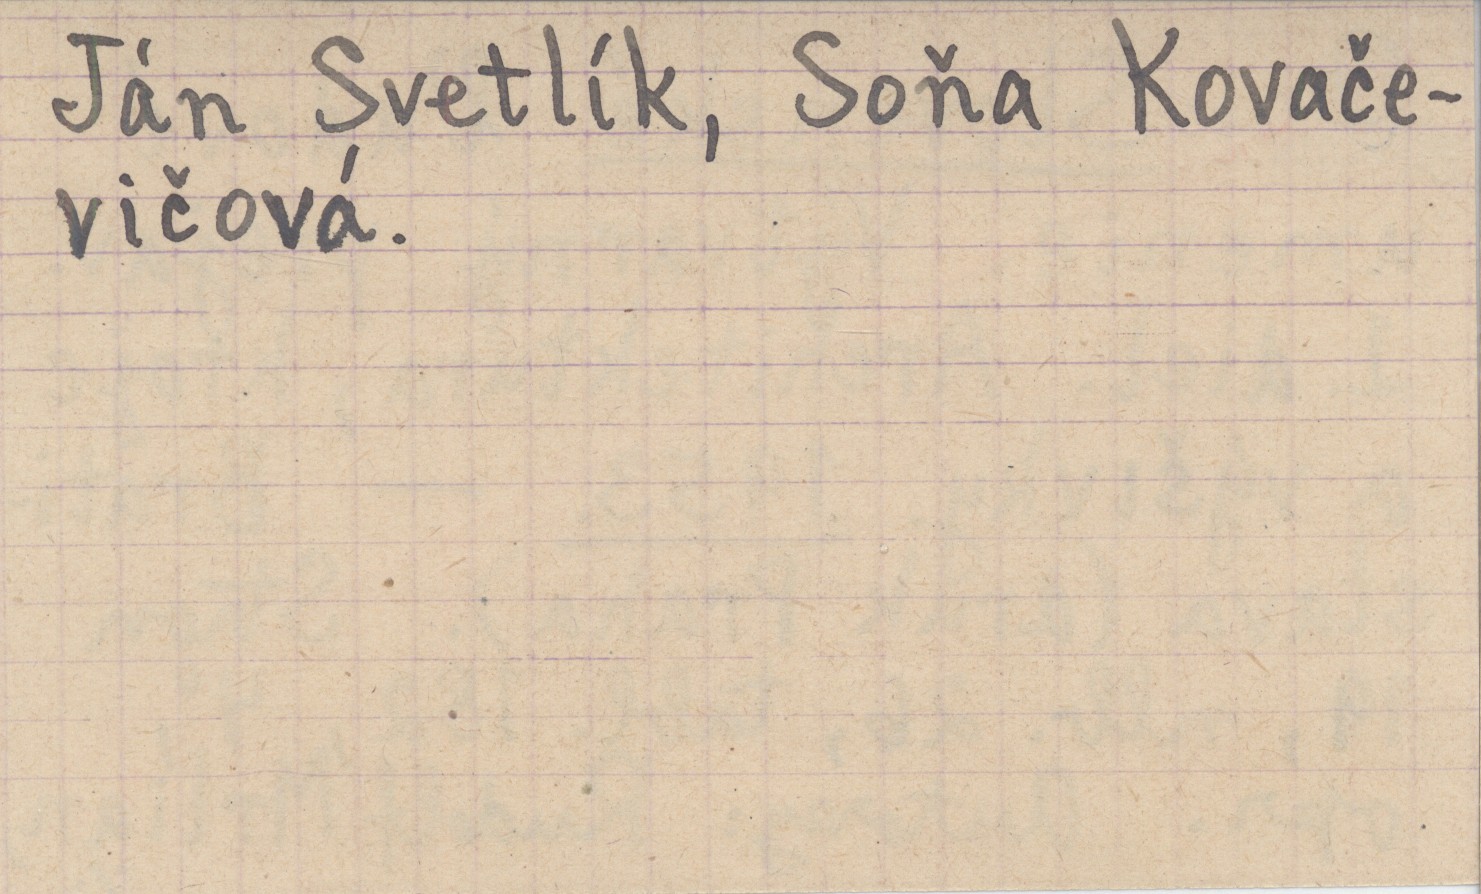 Ján Svetlík, Soňa Kovače-
vičová.